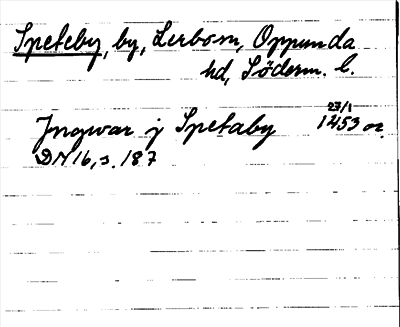 Speteby, by, Lerbom, Oppunda
hd, Söderm. l.
27/1
Jngwar j Spetaby 1453 or.
DN 16, s. 187